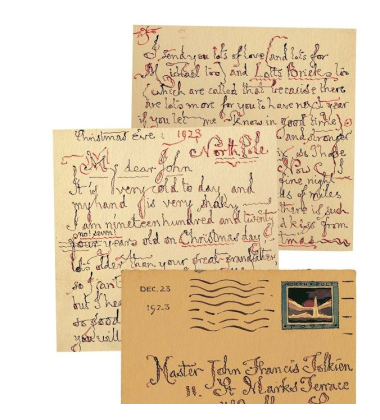 I send you lots of love and lots for
Michael too and Lotts Bricks too
(which are called that because there
are lots more for you to have next year
if you let me know in good time)
and stronger
so I hope
Now I
fine night
of miles
there is such
a kiss from
tmas
Christmas Eve : 1923
North Pole
My dear John
It is very cold to day and
my hand is very shaky
I am nineteen hundred and twenty
no! seven!
four years old on Christmas day
lots older than your great-grandfather
so I can't
but I hea
so good
you will
DEC. 23
1923
Master John Francis Tolkien
11. St Marks Terrace